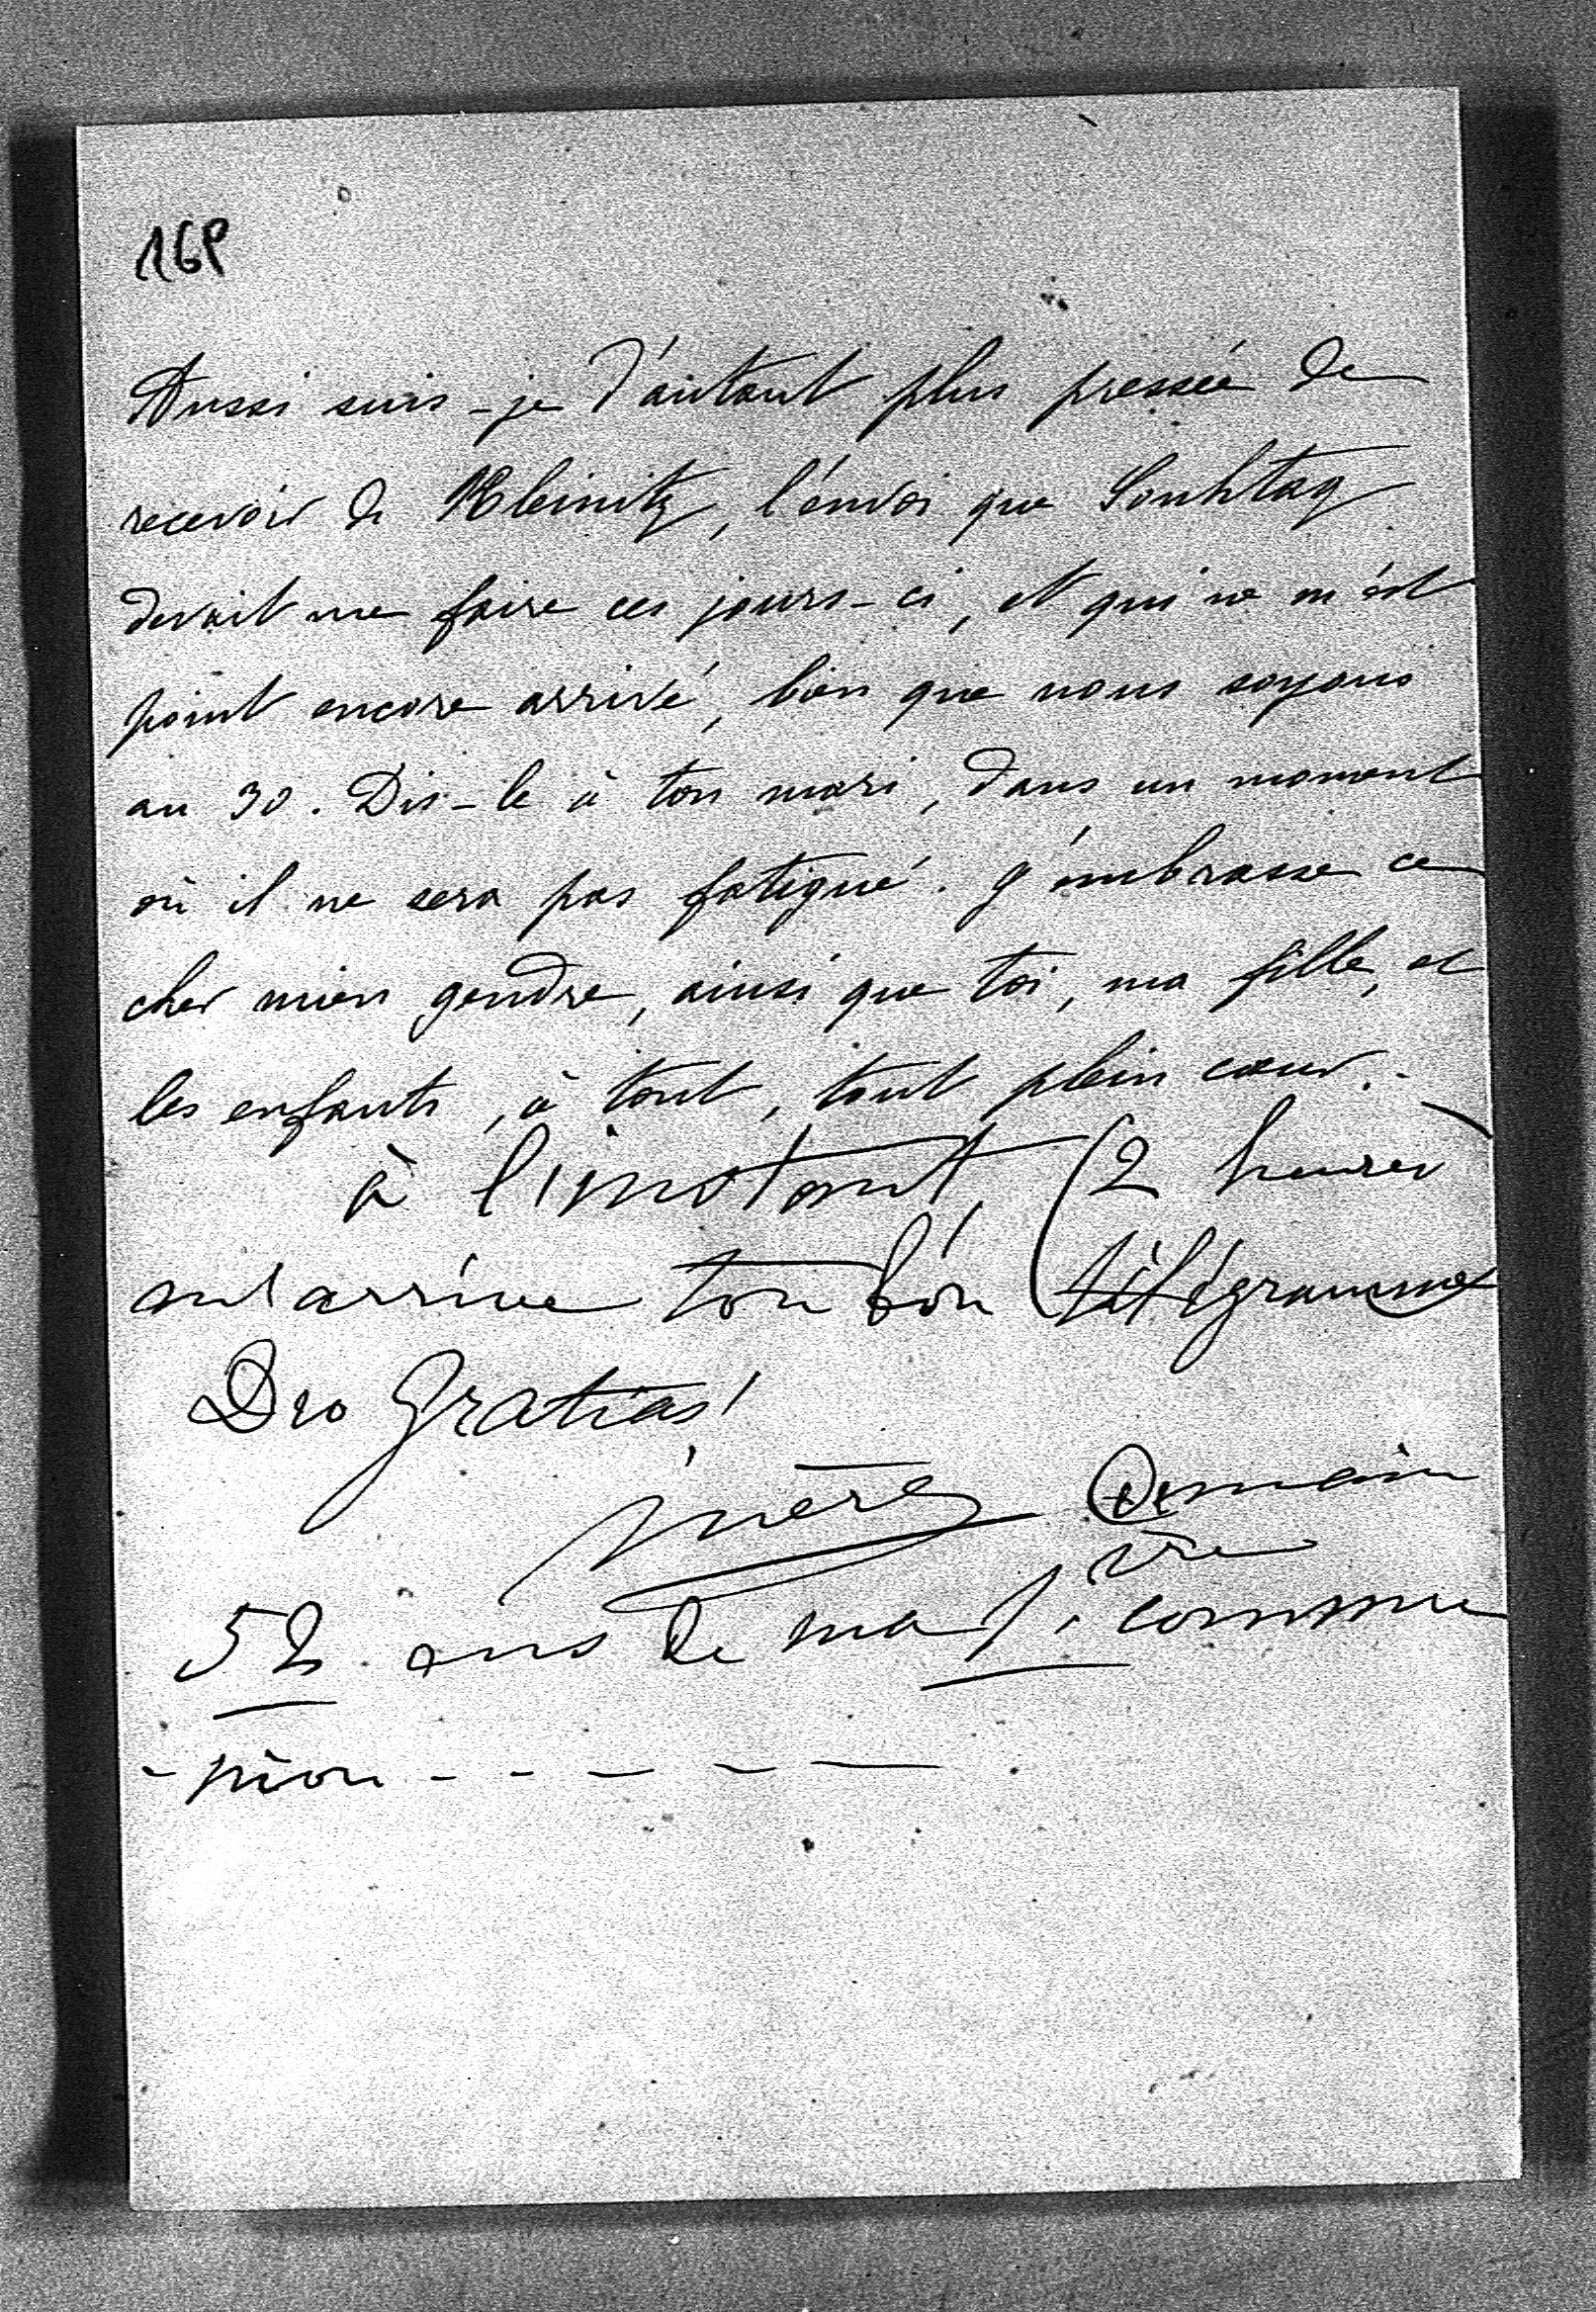 168
Aussi suis-je d'autant plus pressée de
recevoir de Kleinitz, l'envoi que Sonhtag
devait me faire ces jours-ci, et qui ne m'est
point encore arrivé, bien que nous soyons
au 30. Dis-le à ton mari, dans un moment
où il ne sera pas fatigué. J'embrasse ce
cher mien gendre, ainsi que toi, ma fille, et
les enfants, à tout, tout plein cœur.-
à l'instant, (2 heures)
m'arrive ton bon télégramme
Deo Gratias!
mère Demain
52 ans de ma 1ière commu
-nion - - - - -